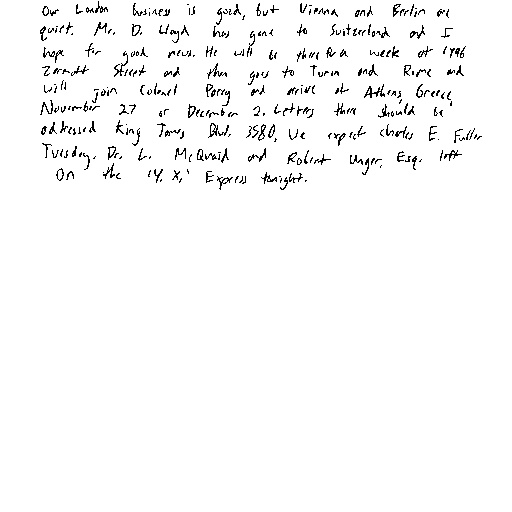 Our London business is good, but Vienna and Berlin are
quiet. Mr. D. Lloyd has gone to Switzerland and I
hope for good news. He will be there for a week at 1496
Zermott Street and then goes to Turin and Rome and
will join Colonel Parry and arrive at Athens, Greece,
November 27 or December 2. Letters there should be
addressed King James Blvd. 3580. We expect Charles E. Fuller
Tuesday. Dr. L. McQuaid and Robert Unger, Esq. left
on the 'Y. X.' Express tonight.